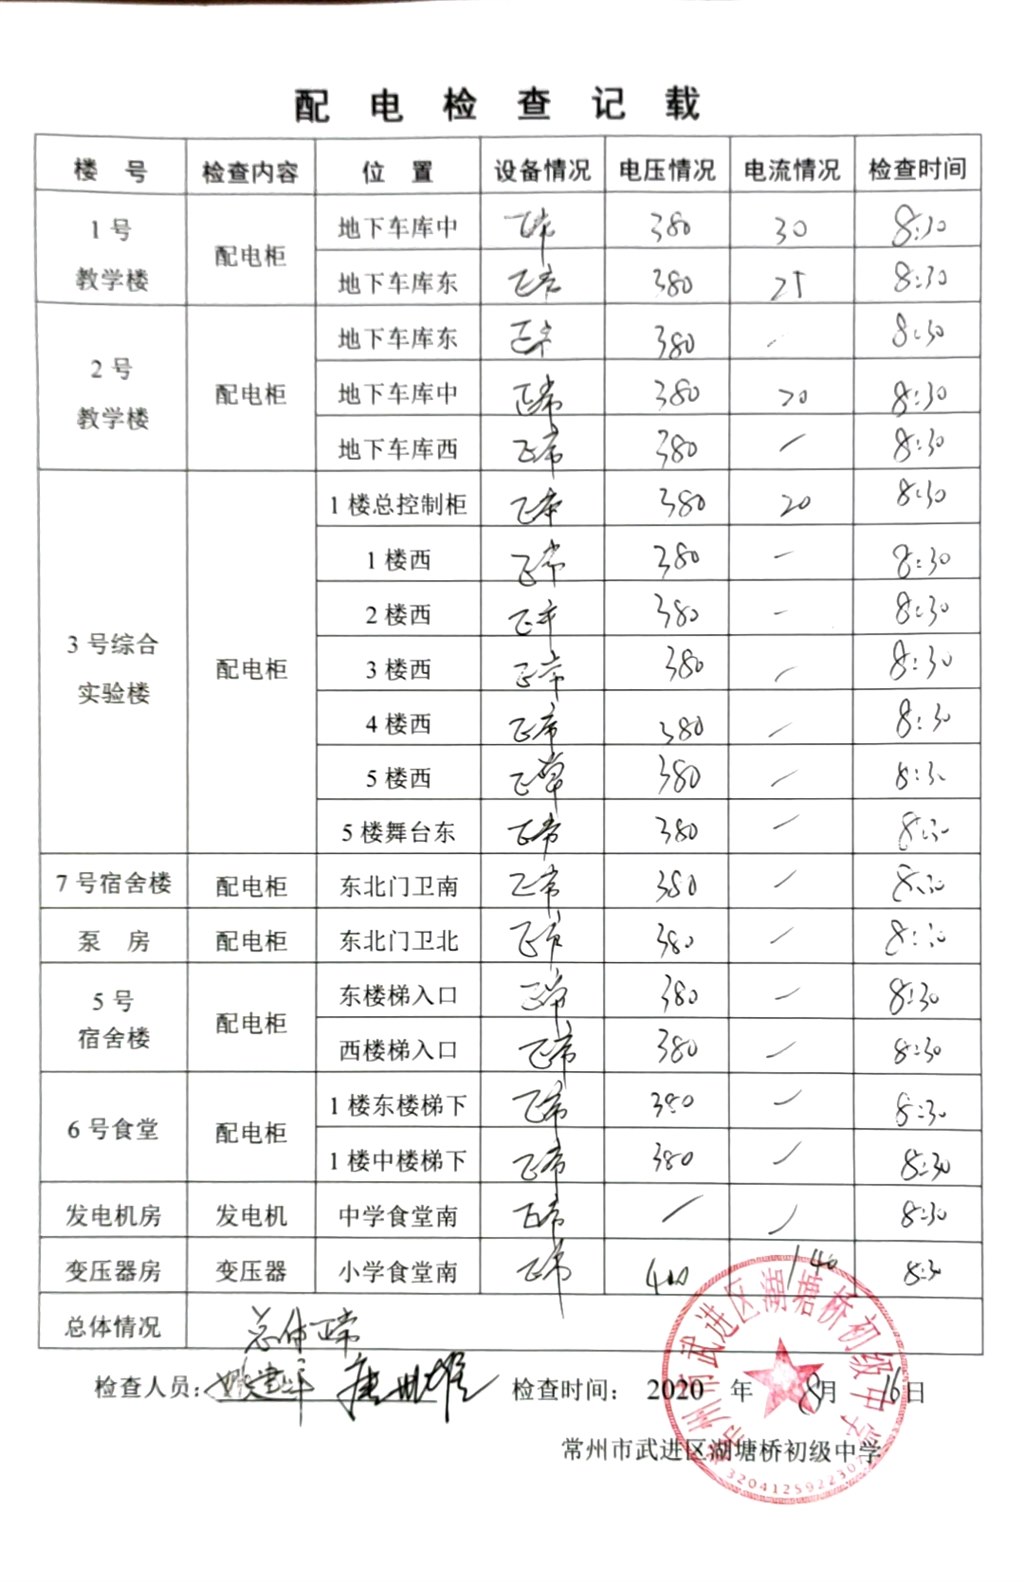 配 电 检 查 记 载
楼 号 检查内容 位 置 设备情况 电压情况 电流情况 检查时间
1号
教学楼
配电柜
地下车库中 正常 380 30 8:30
地下车库东 正常 380 25 8:30
2号
教学楼
配电柜
地下车库东 正常 380 / 8:30
地下车库中 正常 380 20 8:30
地下车库西 正常 380 / 8:30
3号综合
实验楼
配电柜
1楼总控制柜 正常 380 20 8:30
1楼西 正常 380 / 8:30
2楼西 正常 380 / 8:30
3楼西 正常 380 / 8:30
4楼西 正常 380 / 8:30
5楼西 正常 380 / 8:30
5楼舞台东 正常 380 / 8:30
7号宿舍楼 配电柜 东北门卫南 正常 380 / 8:30
泵 房 配电柜 东北门卫北 正常 380 / 8:30
5号
宿舍楼
配电柜
东楼梯入口 正常 380 / 8:30
西楼梯入口 正常 380 / 8:30
6号食堂 配电柜
1楼东楼梯下 正常 380 / 8:30
1楼中楼梯下 正常 380 / 8:30
发电机房 发电机 中学食堂南 正常 / / 8:30
变压器房 变压器 小学食堂南 正常 400 140 8:30
总体情况 总体正常
检查人员: 检查时间: 2020 年 8月 16日
常州市武进区湖塘桥初级中学
常州市武进区湖塘桥初级中学